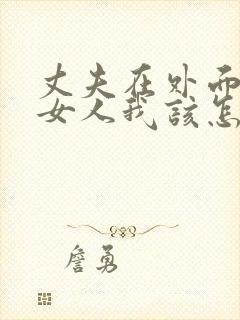 丈夫在外面
女人我该怎
詹勇